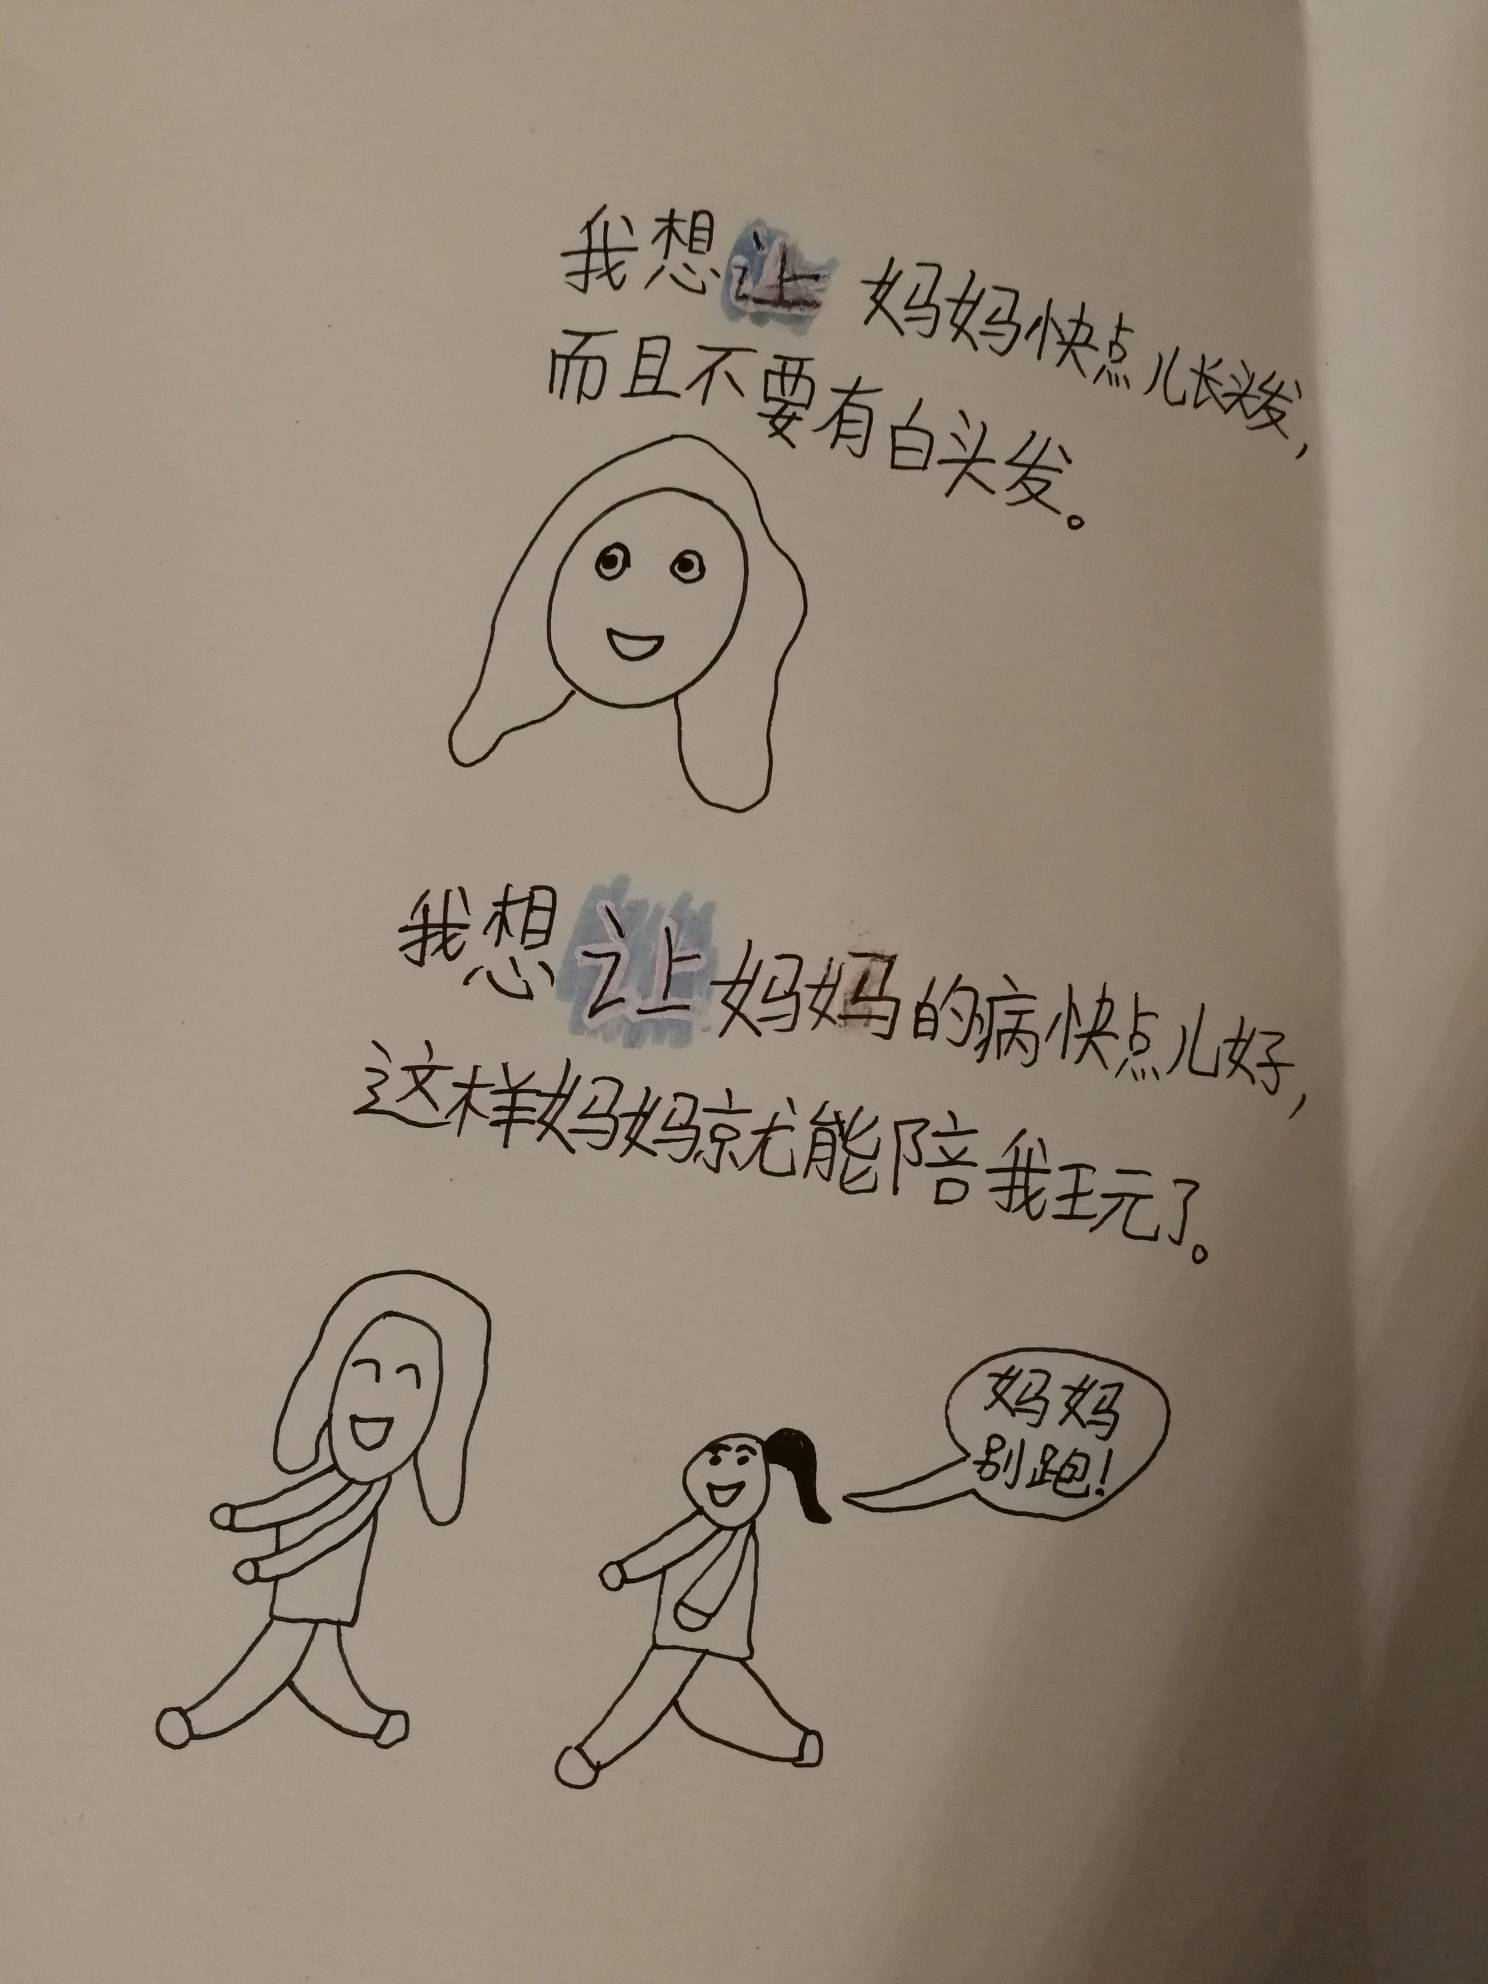 我想让妈妈快点儿长头发，
而且不要有白头发。
我想让妈妈的病快点儿好，
这样妈妈就能陪我玩了。
妈妈
别跑！